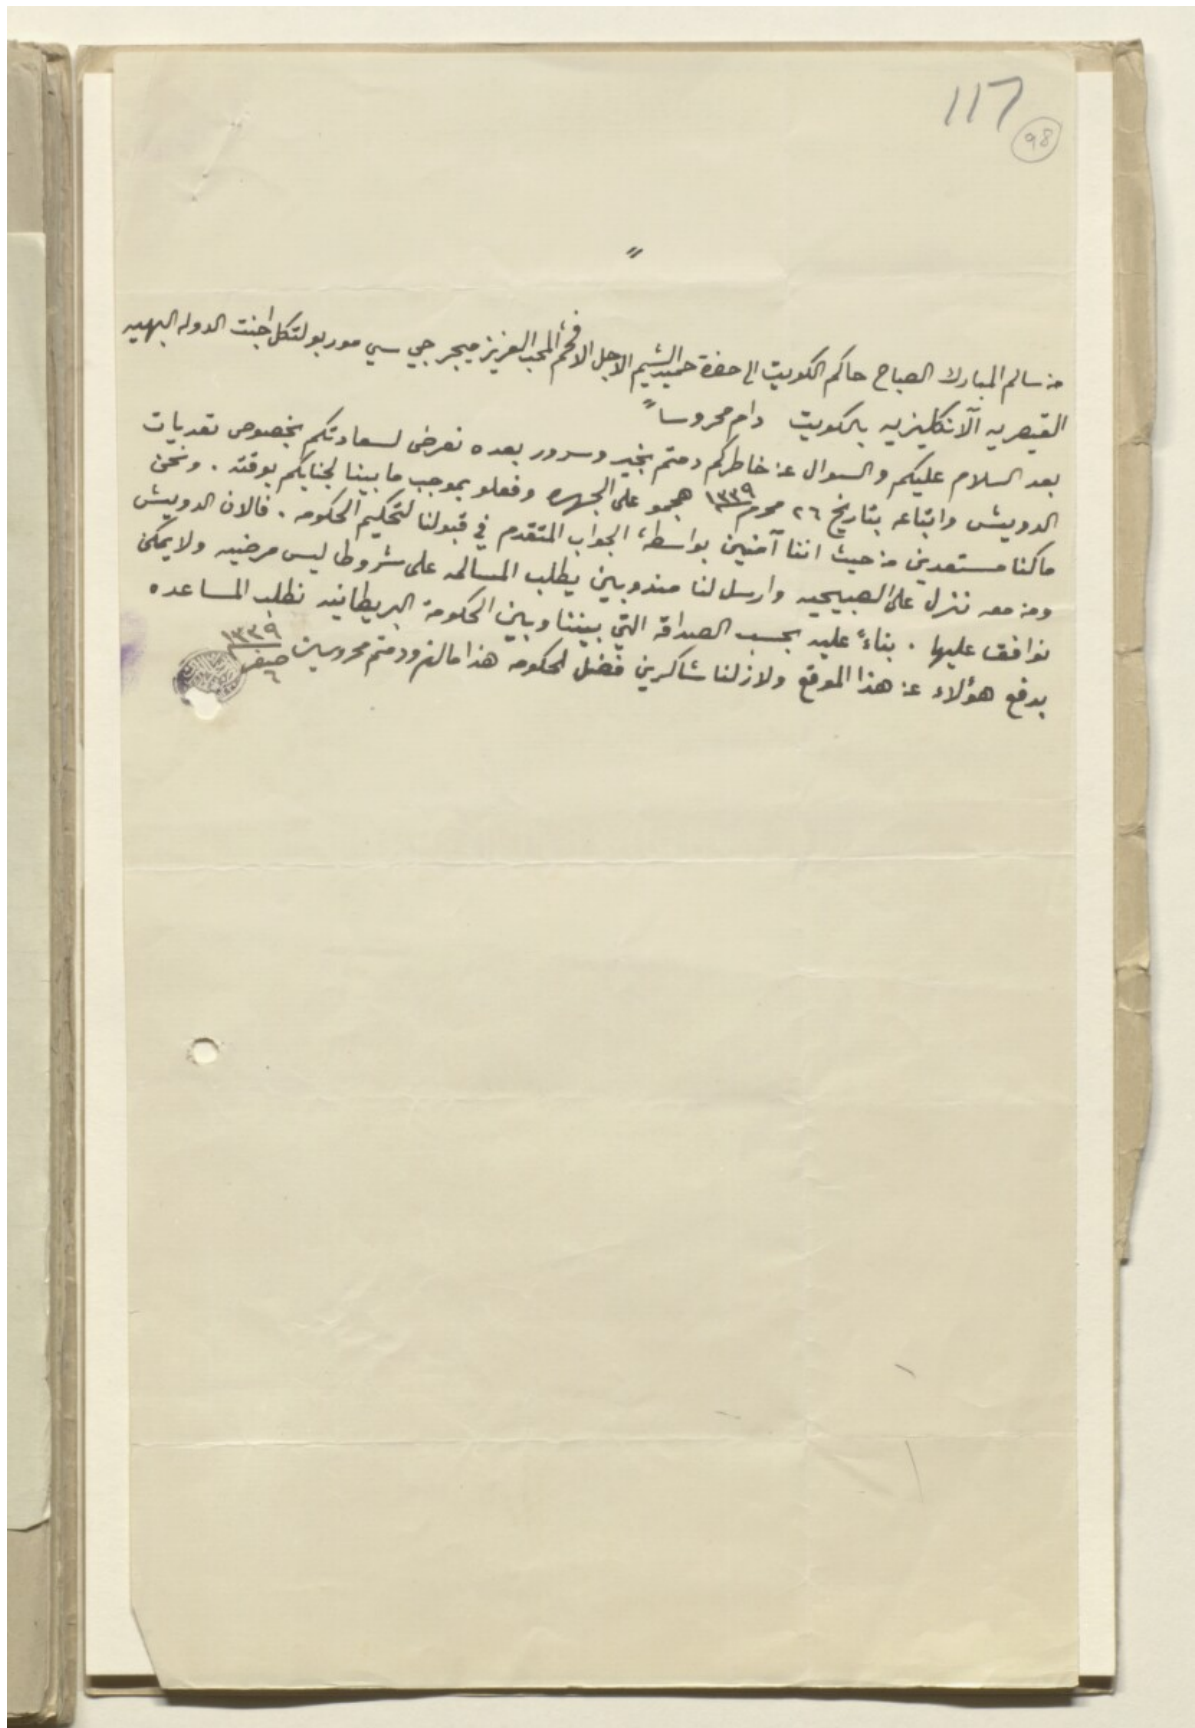 117
98
"
من سالم المبارك الصباح حاكم الكويت الى حضرة حميد الشيم الاجل الافخم المحب العزيز ميجر جي سي مور بولتكل اجنت الدوله البهيه
القيصريه الانكليزيه بالكويت دام محروسا"
بعد السلام عليكم والسوال عن خاطركم دمتم بخير وسرور بعده نعرض لسعادتكم بخصوص تعديات
الدويش واتباعه بتاريخ ٢٦ محرم ١٣٣٩ هجمو على الجهره وفعلو بموجب ما بينا لجنابكم بوقته . ونحن
ماكنا مستعدين من حيث اننا آمنين بواسطة الجواب المتقدم في قبولنا لتحكيم الحكومه . فالان الدويش
ومن معه نزل على الصبيحيه وارسل لنا مندوبين يطلب المسالمه على شروطا ليس مرضيه ولا يمكن
نوافقه عليها . بناءً عليه بحسب الصداقه التي بيننا وبين الحكومة البريطانيه نطلب المساعده
بدفع هؤلاء عن هذا الموقع ولازلنا شاكرين فضل الحكومه هذا مالزم ودمتم محروسين ٦ صفر ١٣٣٩